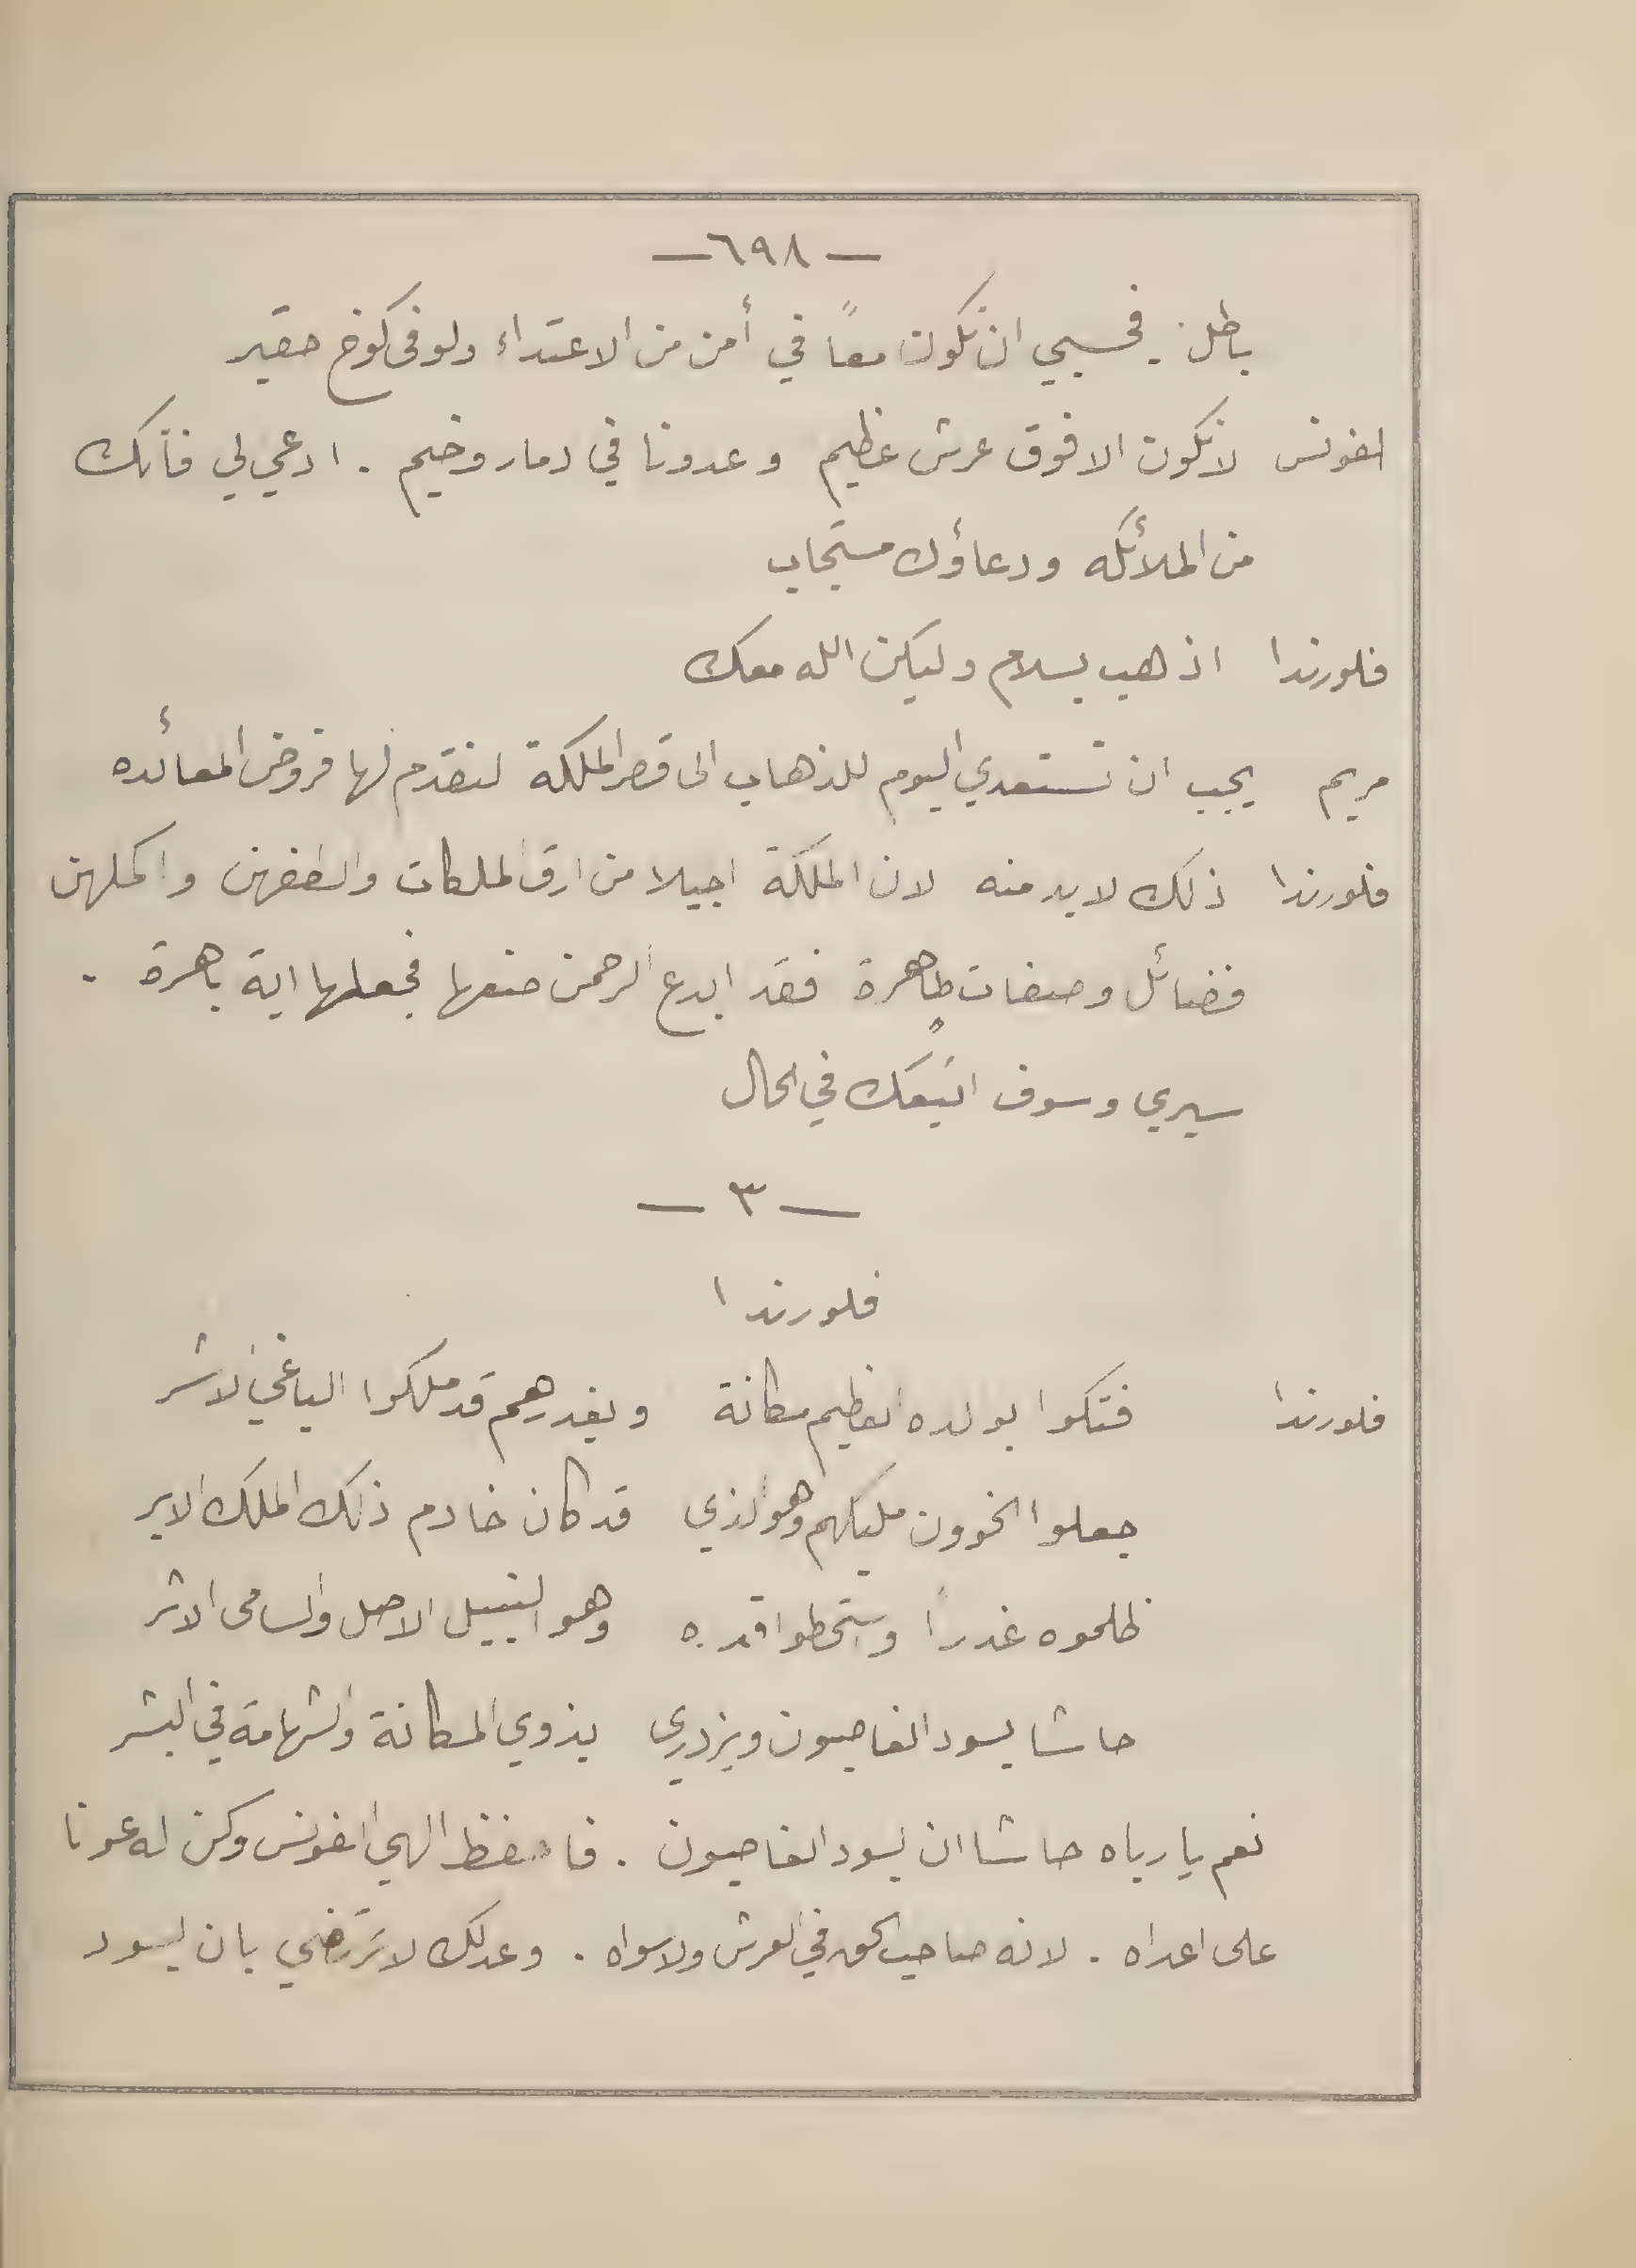 — ٦٩٨ —
باطل . فحسبي ان نكون معاً في أمن من الاعتداء ولو في كوخ حقير
الفونس لا نكون الا فوق عرش عظيم وعدونا في دمار وخيم . ادعي لي فأنك
من الملائكه ودعاؤك مستجاب
فلورندا اذهب بسلام وليكن الله معك
مريم يجب ان تستعدي اليوم للذهاب الى قصر الملكة لنقدم لها فروض المعائده
فلورندا ذلك لابد منه لان الملكة اجيلا من ارق الملكات والطفهن واكملهن
فضائل وصفات طاهرة فقد ابدع الرحمن صنعها فجعلها اية باهرة .
سيري وسوف اتبعك في الحال
— ٣ —
فلورندا
فلورندا فتكوا بولده العظيم مكانة وبغدرهم قد ملكوا الباغي الاشر
جعلوا الخوون مليكهم وهو الذي قد كان خادم ذلك الملك الابر
ظلموه غدراً واستحطوا قدره وهو النبيل الاصل والسامي الاثر
حاشا يسود الغاصبون ويزدري بذوي المكانة والشهامة في البشر
نعم يا رباه حاشا ان يسود الغاصبون . فاحفظ الهي الفونس وكن له عونا
على اعداه . لانه صاحب الحق في العرش ولا سواه . وعدلك لا يرتضي بان يسود